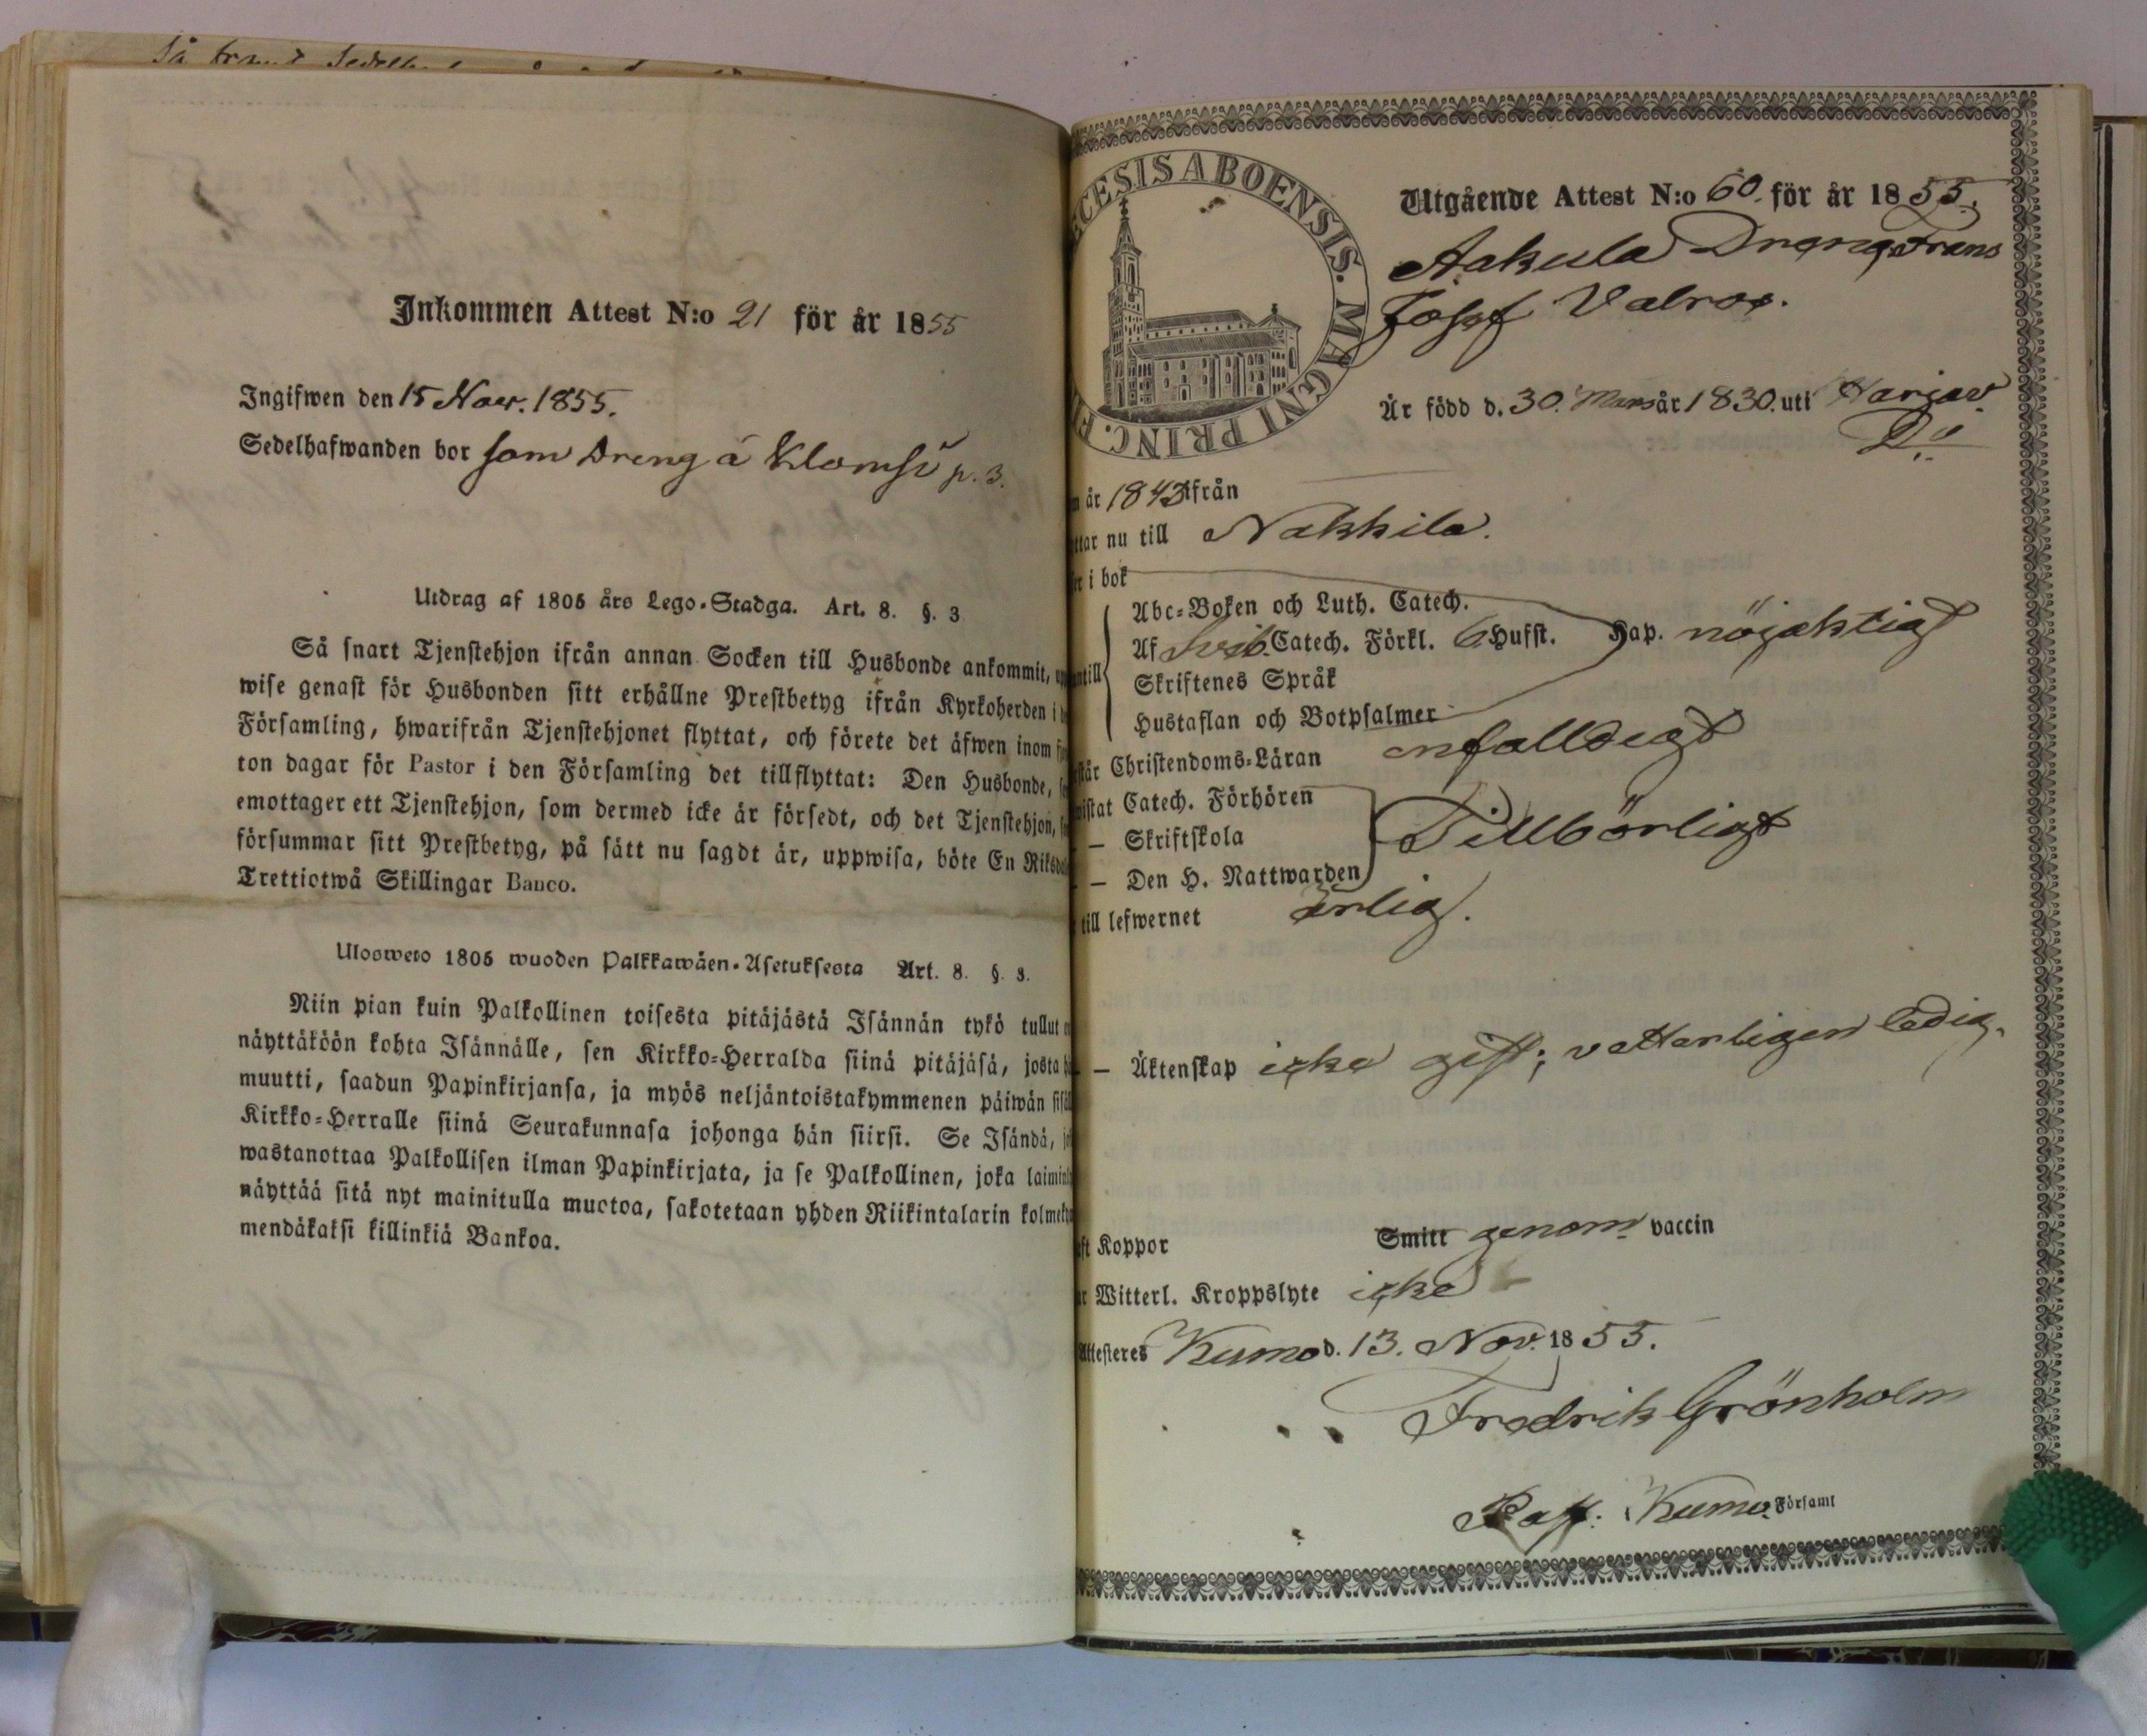 Inkommen Attest N:o 21 för år 1855
Ingifwen den 15 Nov. 1855.
Sedelhafwanden bor som Dreng å Klomsi p. 3.
Utdrag af 1805 års Lego-Stadga. Art. 8. §. 3
Så snart Tjenstehjon ifrån annan Socken till Husbonde ankommit,
wise genast för Husbonden sitt erhållne Prestbetyg ifrån Kyrkoherden i
Församling, hwarifrån Tjenstehjonet flyttat, och förete det äfwen inom
ton dagar för Pastor i den Församling det tillflyttat: Den Husbonde,
emottager ett Tjenstehjon, som dermed icke är försedt, och det Tjenstehjon,
försummar sitt Prestbetyg, på sätt nu sagdt är, uppwisa, böte En Riksd
Trettiotwå Skillingar Banco.
Ulosweto 1805 wuoden Palkkawäen-Asetuksesta Art. 8. §. 3.
Niin pian kuin Palkollinen toisesta pitäjästä Isännän tykö tullut
näyttäköön kohta Isännälle, sen Kirkko-Herralda siinä pitäjäsä, josta
muutti, saadun Papinkirjansa, ja myös neljäntoistakymmenen päiwän sisä
Kirkko-Herralle siinä Seurakunnasa johonga hän siirsi. Se Isändä,
wastanottaa Palkollisen ilman Papinkirjata, ja se Palkollinen, joka laimin
näyttää sitä nyt mainitulla muotoa, sakotetaan yhden Riikintalarin kolmek
mendäkaksi killinkiä Bankoa.
CESIS ABOENSIS. MAGNI PRINC. FI
Utgående Attest N:o 60. för år 1855.
Aakula Dreng Frans
Josef Valros.
Är född d. 30. Mars år 1830. uti Harjav.
D:o
år 1843 ifrån
ttar nu till Nakkila.
er i bok
Abc-Boken och Luth. Catech.
Af Sveb. Catech. Förkl. 6 Hufst. Hap. nöjaktigt
antill
Skriftenes Språk
Hustaflan och Botpsalmer
står Christendoms-Läran enfalldigt
wistat Catech. Förhören
— Skriftskola Tillbörligt
— Den H. Nattwarden
till lefwernet ärlig.
— Äktenskap icke gift; vetterligen ledig.
ft Koppor Smitt genom vaccin
r Witterl. Kroppslyte icke
Attesteres Kumo d. 13. Nov. 1855.
Fredrik Grönholm
Past. Kumo Församl